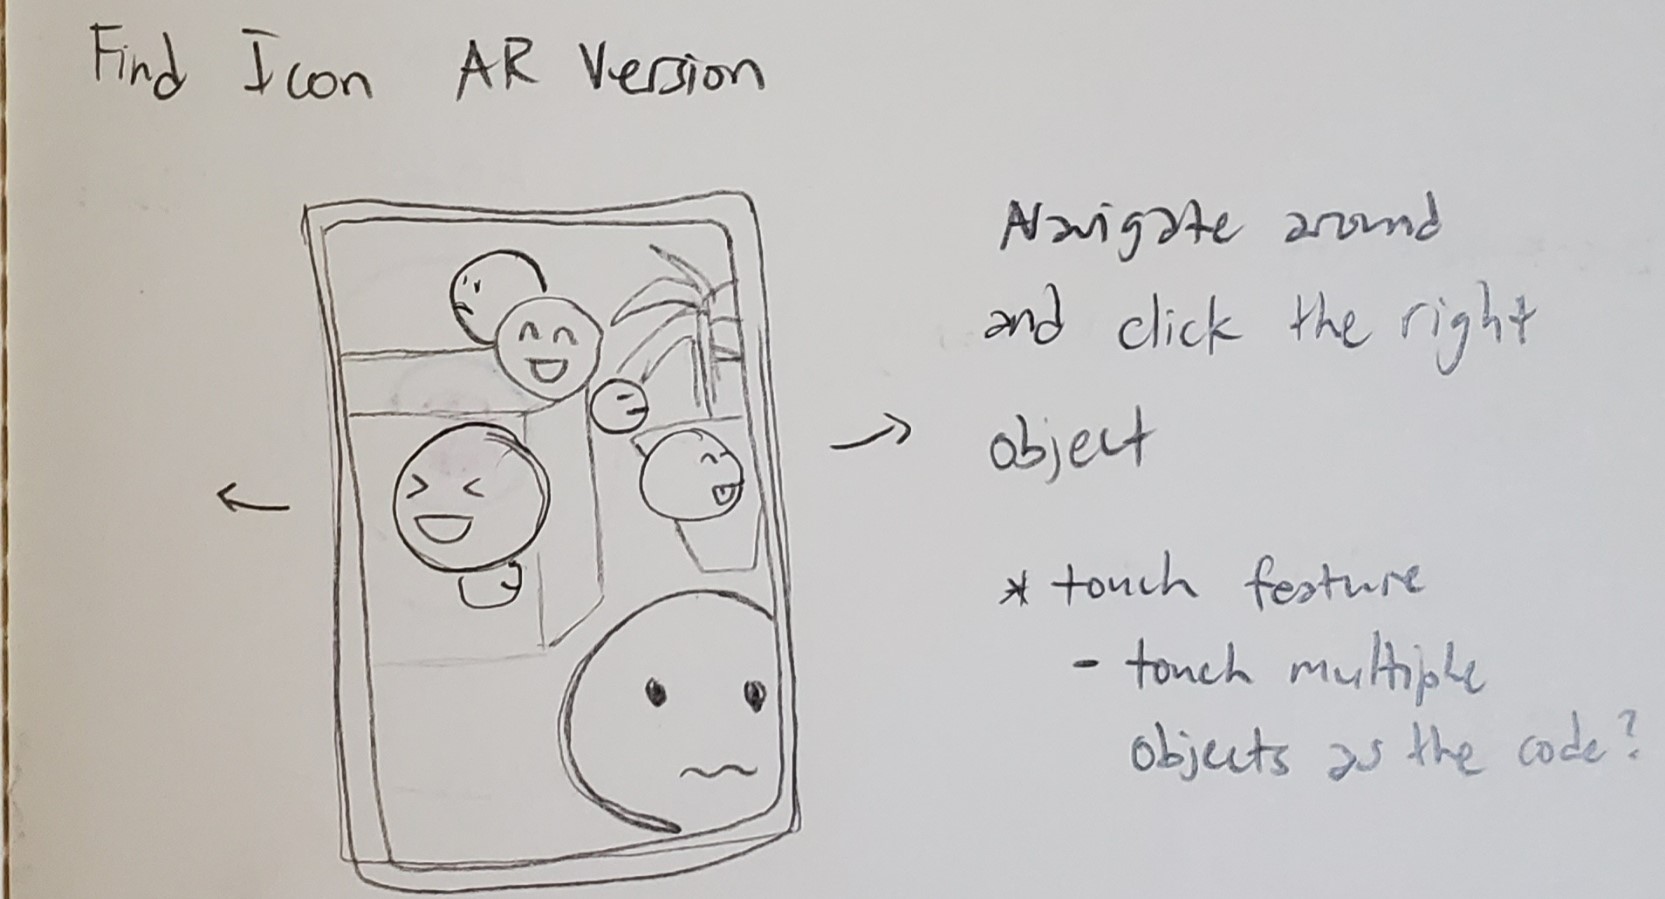 Find Icon AR Version
Navigate around
and click the right
object
* touch feature
- touch multiple
objects as the code?